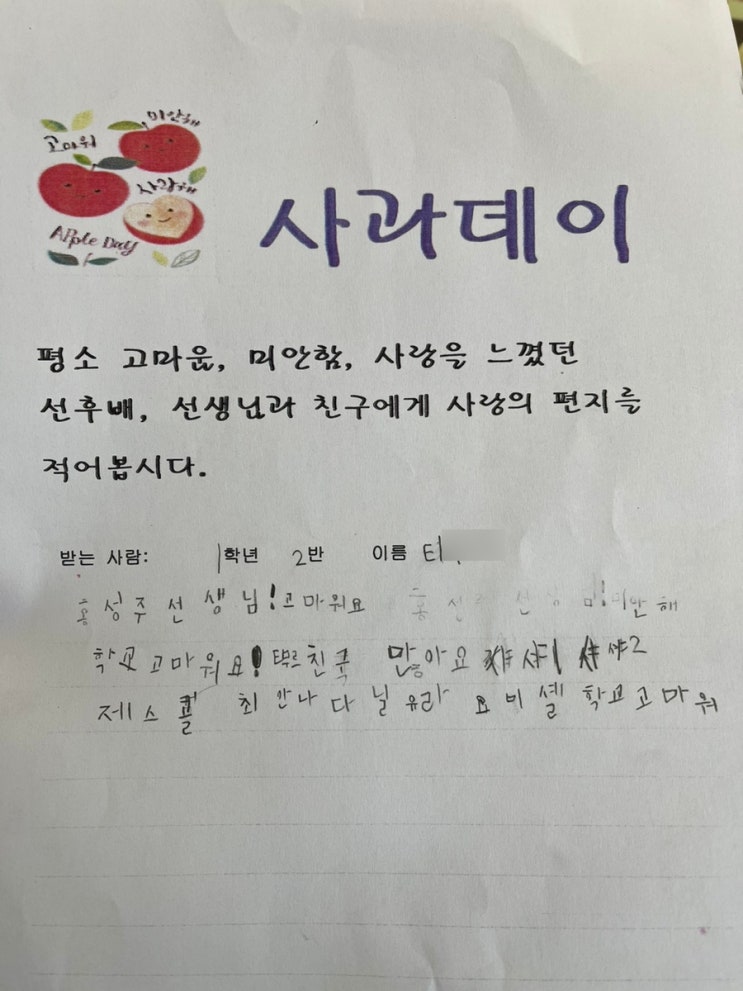 미안해
고마워
사랑해
Apple Day
사과데이
평소 고마움, 미안함, 사랑을 느꼈던
선후배, 선생님과 친구에게 사랑의 편지를
적어봅시다.
받는 사람: 1학년 2반 이름 Eㅏ
홍성주선생님!고마워요 홍 선생님!미안해
학교고마워요! 친구 많아요
제스퀄 최안나 다닐 유라 요비셸 학교고마워